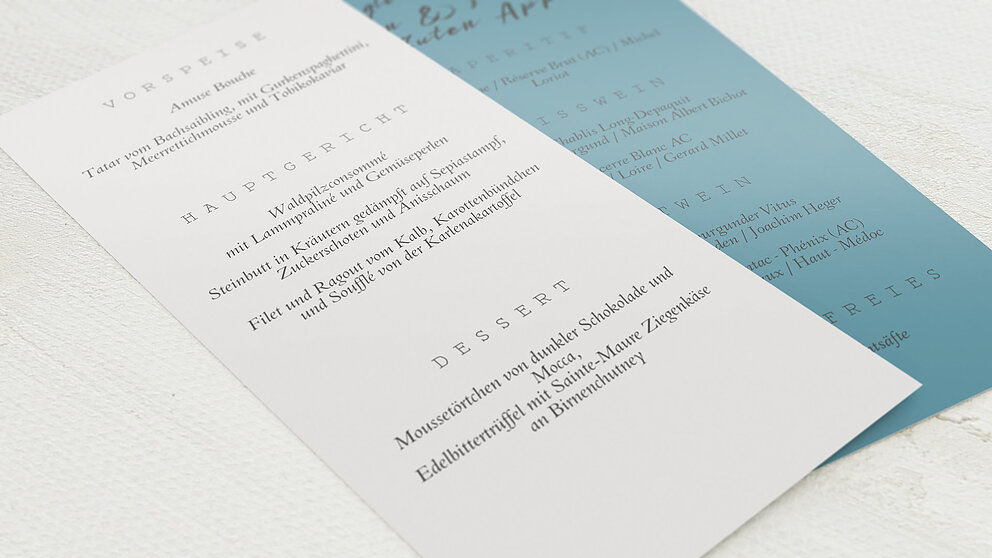 VORSPEISE
Amuse Bouche
Tatar vom Bachsaibling, mit Gurkenspaghettini,
Meerrettichmousse und Tobikokaviar
HAUPTGERICHT
Waldpilzconsommé
mit Lammpraliné und Gemüseperlen
Steinbutt in Kräutern gedämpft auf Sepiastampf,
Zuckerschoten und Anisschaum
Filet und Ragout vom Kalb, Karottenbündchen
und Soufflé von der Karlenakartoffel
DESSERT
Moussetörtchen von dunkler Schokolade und
Mocca,
Edelbittertrüffel mit Sainte-Maure Ziegenkäse
an Birnenchutney
&
Guten App
APERITIF
/ Réserve Brut (AC) / Michel
Loriot
ISSWEIN
hablis Long-Depaquit
gund / Maison Albert Bichot
cerre Blanc AC
/ Loire / Gerard Millet
TWEIN
urgunder Vitus
den / Joachim Heger
atac - Phénix (AC)
ux / Haut - Médoc
FREIES
tsäfte